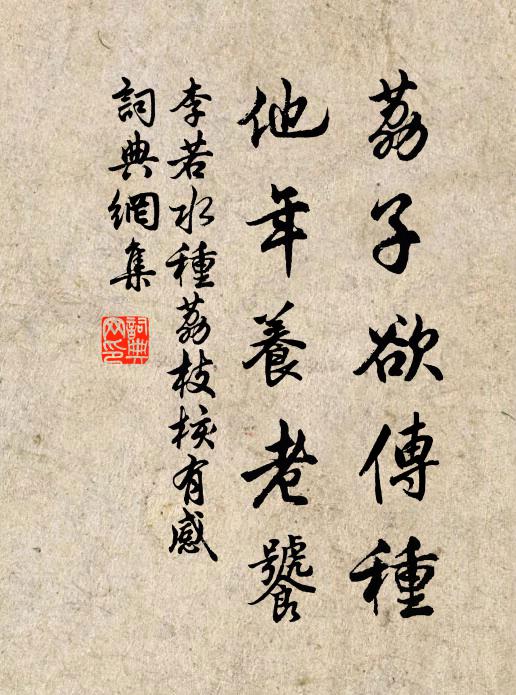 荔子欲傳種
他年養老饕
李若水種荔枝核有感
詞典網集
詞典網印